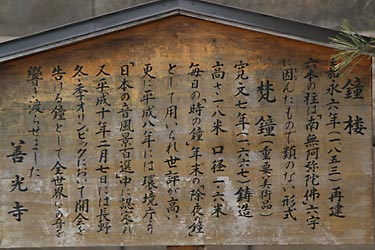 鐘楼
嘉永六年（一八五三）再建
六本の柱は南無阿弥陀佛六字
に因んだもので類のない形式
梵鐘（重要美術品）
寛文七年（一六六七）鋳造
高さ一・八米 口径一・一六米
毎日の「時の鐘」年末の「除夜の鐘」
として用いられ世評が高い
更に平成八年には環境庁より
「日本の音風景百選」中に認定され
又平成十年二月七日には長野
冬季オリンピックにおいて開会を
告げる鐘として全世界にその音を
響き渡らせました
善光寺